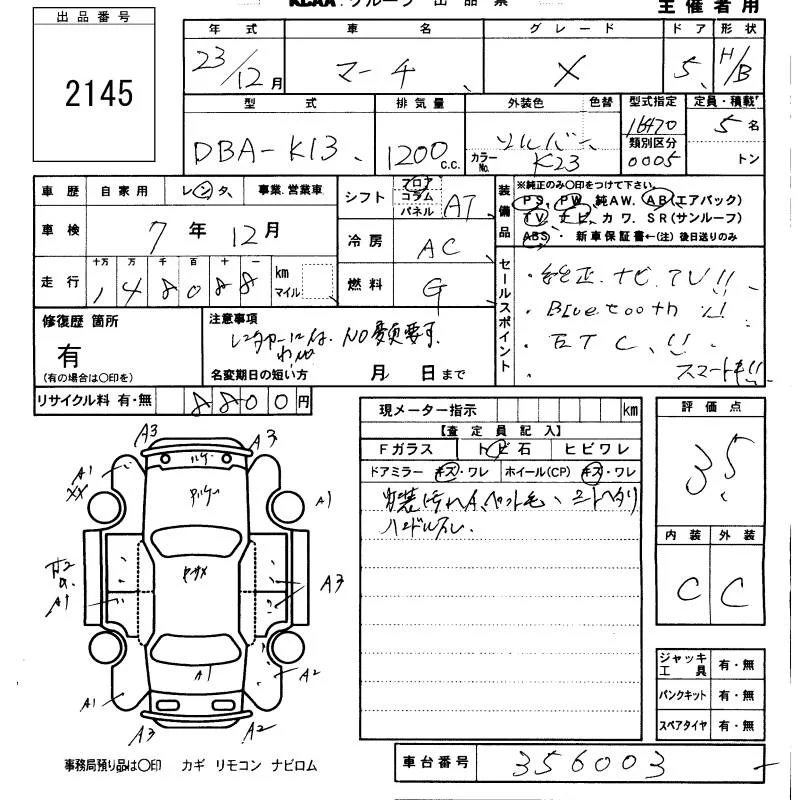 KCAA.グループ 出品票 主催者用
出品番号
2145
年式 車名 グレード ドア 形状
23/12月 マーチ X 5 H/B
型式 排気量 外装色 色替 型式指定 定員・積載
DBA-K13 1200 c.c. シルバー カラーNo. K23 16470 5名
類別区分
0005 トン
車歴 自家用 レンタ 事業.営業車
車検 7年12月
走行 十万 万 千 百 十 一 km マイル
148088
シフト フロア コラム パネル AT
冷房 AC
燃料 G
装備品
※純正のみ〇印をつけて下さい。
PS. PW. 純AW. AB(エアバック)
TV ナビ カワ. SR(サンルーフ)
ABS・新車保証書←(注)後日送りのみ
セールスポイント
・純正ナビTV!!
・Bluetooth!!
・ETC!!
スマートキー!!
修復歴 箇所
有
(有の場合は〇印を)
注意事項
名変期日の短い方 月 日まで
リサイクル料 有・無 8800円
現メーター指示 km
【査定員記入】
Fガラス トビ石 ヒビワレ
ドアミラー キズ・ワレ ホイール(CP) キズ・ワレ
内装汚れA、ペット毛、シートヘタリ
ハンドルスレ.
評価点
3.5
内装 外装
C C
ジャッキ工具 有・無
パンクキット 有・無
スペアタイヤ 有・無
A3 A3
A1 XX
A1
A1
A3
A1
A1 A2
A3 A2
事務局預り品は〇印 カギ リモコン ナビロム
車台番号 356003